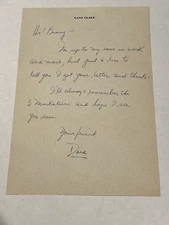 Hi! Benny -
I'm up to my ears in work
and more, but just a line to
tell you I got your letter and thanks.
I'll always remember the
3 Mountaineers and hope I see
you soon.
Your friend
Dave